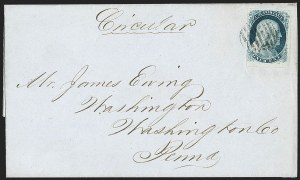 Circular
Mr. James Ewing
Washington
Washington Co
Penna